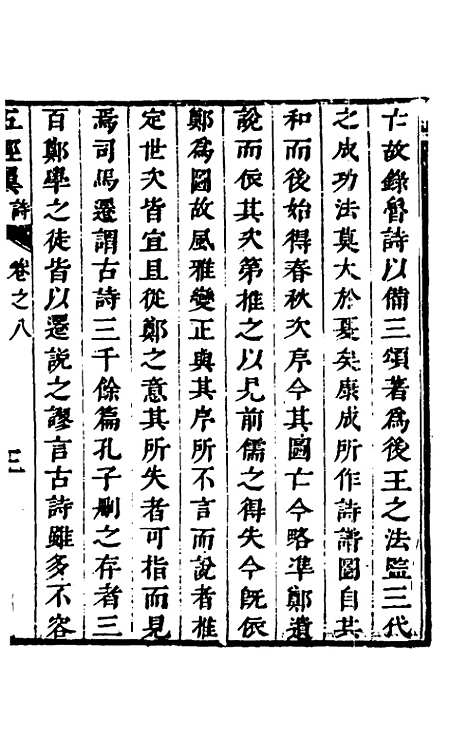 亡故錄魯詩以備三頌著爲後王之法監三代
之成功法莫大於憂矣康成所作詩譜圖自共
和而後始得春秋次序今其圖亡今略準鄭遺
說而依其次第推之以見前儒之得失今旣依
鄭爲圖故風雅變正與其序所不言而說者推
定世次皆宜且從鄭之意其所失者可指而見
焉司馬遷謂古詩三千餘篇孔子刪之存者三
百鄭學之徒皆以遷說之謬言古詩雖多不容
五經異 詩 卷之八 三